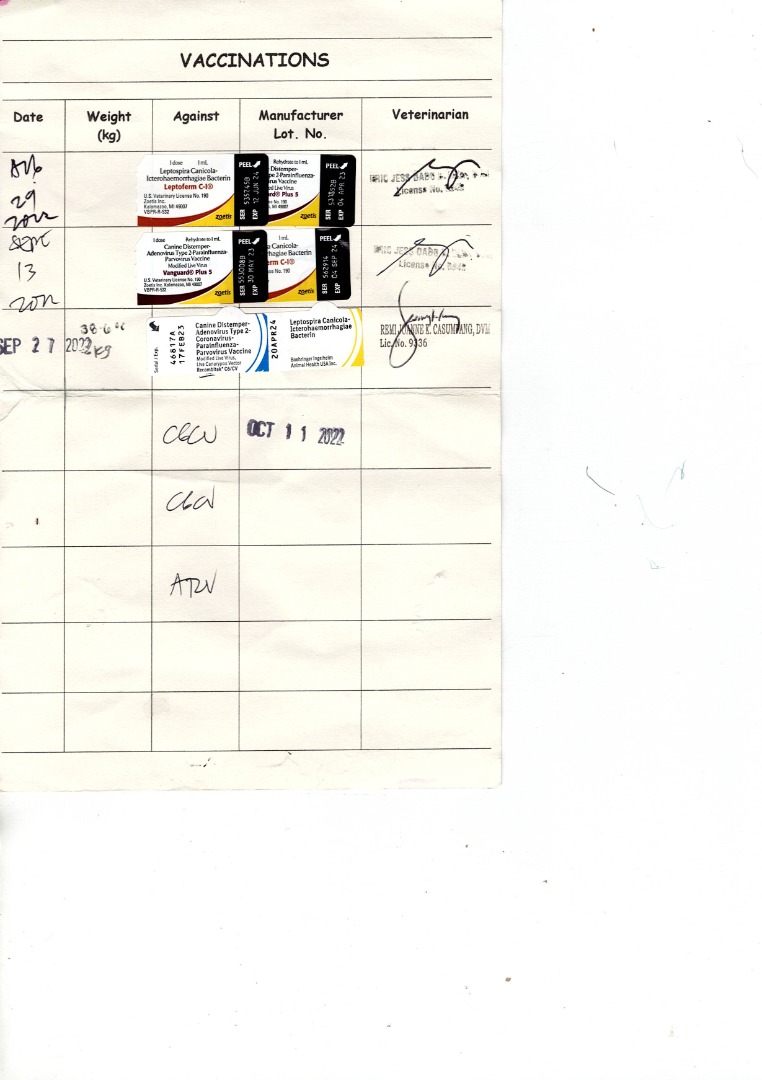 VACCINATIONS
Date Weight (kg) Against Manufacturer Lot. No. Veterinarian
29
1 dose 1 mL
Leptospira Canicola-
Icterohaemorrhagiae Bacterin
Leptoferm C-I®
U.S. Veterinary License No. 190
Zoetis Inc.
Kalamazoo, MI 49007
VBPR-R-532
zoetis
PEEL
SER
EXP 12 JUN 24
Rehydrate to 1 mL
Distemper-
pe 2-Parainfluenza-
us Vaccine
ed Live Virus
rd® Plus 5
s No. 190
MI 49007
zoetis
PEEL
SER
EXP 04 APR 23
License No.
SEPT
13
1 dose Rehydrate to 1 mL
Canine Distemper-
Adenovirus Type 2-Parainfluenza-
Parvovirus Vaccine
Modified Live Virus
Vanguard® Plus 5
U.S. Veterinary License No. 190
Zoetis Inc. Kalamazoo, MI 49007
VBPR-R-532
zoetis
PEEL
SER
EXP 30 MAY 23
1 mL
a Canicola-
rhagiae Bacterin
erm C-I®
se No. 190
zoetis
PEEL
SER
EXP 04 SEP 24
License No.
SEP 27 2022
KG
Serial / Exp.
46817A
17FEB23
Canine Distemper-
Adenovirus Type 2-
Coronavirus-
Parainfluenza-
Parvovirus Vaccine
Modified Live Virus,
Live Canarypox Vector
Recombitek® C6/CV
20APR24
Leptospira Canicola-
Icterohaemorrhagiae
Bacterin
Boehringer Ingelheim
Animal Health USA Inc.
REMI JOANNE K. CASUMPANG, DVM
Lic. No. 9336
OCT 11 2022